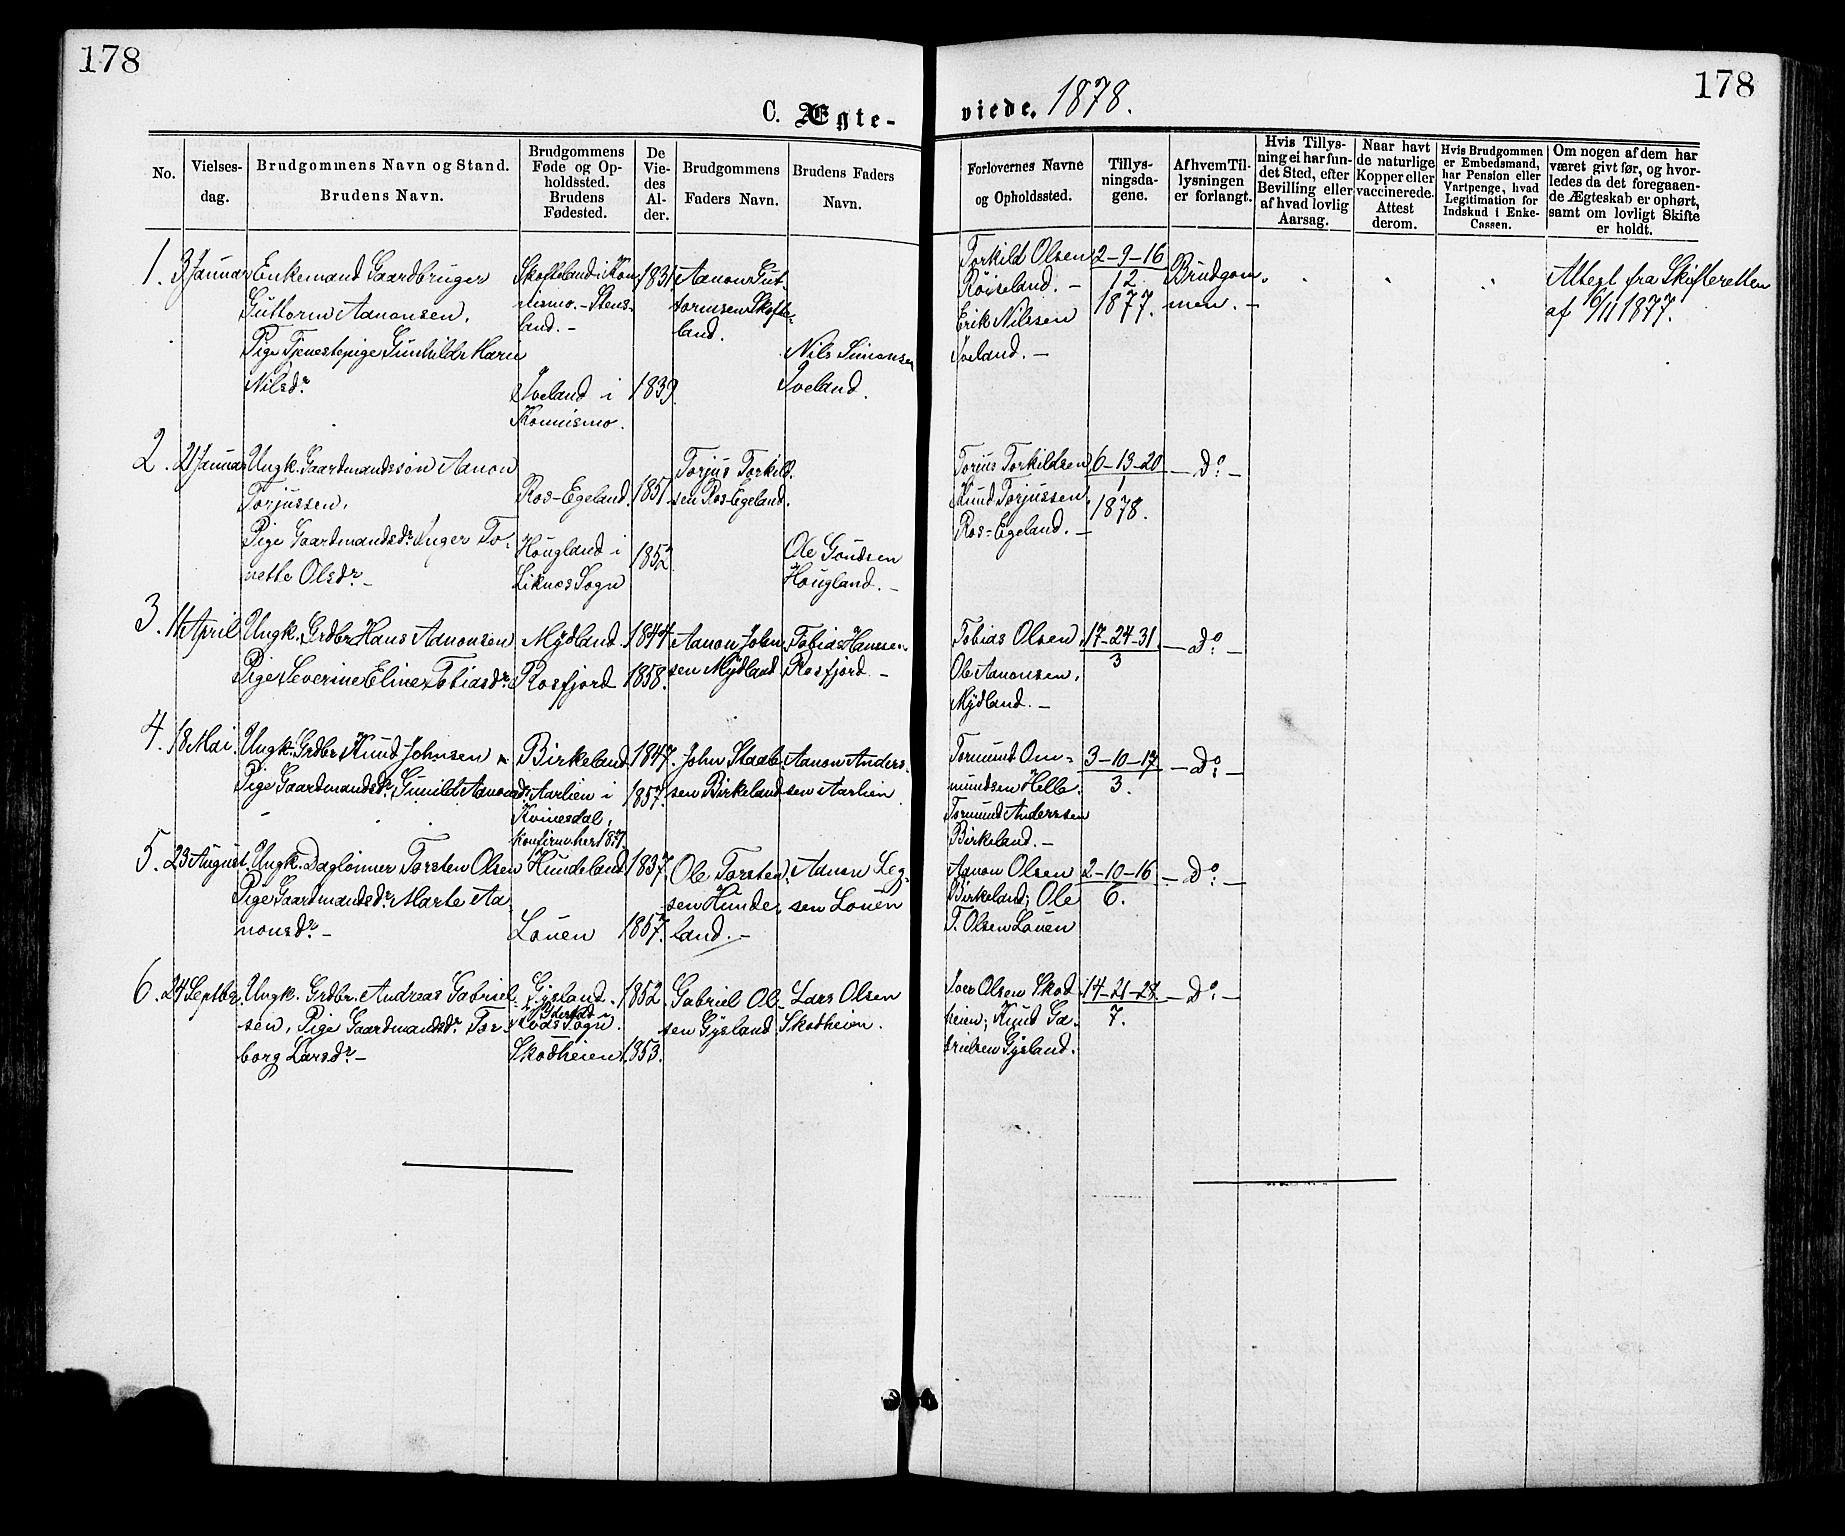 178
178
C. Ægte-
viede. 1878.
No.
Vielses-
dag.
Brudgommens Navn og Stand.
Brudens Navn.
Brudgommens
Føde og Op-
holdssted.
Brudens
Fødested.
De
Vie-
des
Al-
der.
Brudgommens
Faders Navn.
Brudens Faders
Navn.
Forlovernes Navne
og Opholdssted.
Tillys-
ningsda-
gene.
Af hvem Til-
lysningen
er forlangt.
Hvis Tillys-
ning ei har fun-
det Sted, efter
Bevilling eller
af hvad lovlig
Aarsag.
Naar havt
de naturlige
Kopper eller
vaccinerede.
Attest
derom.
Hvis Brudgommen
er Embedsmand,
har Pension eller
Vartpenge, hvad
Legitimation for
Indskud i Enke-
Cassen.
Om nogen af dem har
været givt før, og hvor-
ledes da det foregaaen-
de Ægteskab er ophørt,
samt om lovligt Skifte
er holdt.
1.
3 Januar
Enkemand Gaardbruger
Guttorm Aanonsen.
Pige Tjenestepige Gunhilds Karn
Nilsdr
Skofteland i Kon-
rismo. - Stens-
land. -
Iveland i
Konnismo.
1831
1839
Aanon Gut-
tormsen Skofte-
land.
Nils Simonsen
Iveland.
Torkild Olsen
Røiseland. -
Erik Nilssen
Iveland. -
2-9-16
12
1877.
Brudgom-
men. -
Attest fra Skifteretten
af 16/11 1877.
2.
21 Januar
Ungk. Gaardmandssøn Aanon
Torjussen.
Pige Gaardmandsdr Inger To-
nette Olsdr -
Ros-Egeland.
Hougland i
Liknes Sogn
1851
1852
Torjus Torkild-
sen Ros-Egeland.
Ole Gundsen
Hougland. -
Torius Torkildsen
Knud Torjussen
Ros-Egeland. -
6-13-20
1
1878.
- Do -
3.
11 April
Ungk. Grdbr. Hans Aanonsen
Pige Severine Eline Tobiasdr
Mydland
Rosfjord
1844
1858.
Aanon John-
sen Mydland
Tobias Hansen
Rosfjord. -
Tobias Olsen
Ole Aanonsen,
Mydland. -
17-24-31
3
- Do -
4.
18 Mai.
Ungk. Grdbr. Knud Johnsen
Pige Gaardmandsdr. Gunild Aanonsdr
Birkeland
Aarlien i
Kvinesdal,
1847.
1857.
John Staale-
sen Birkeland
Aanon Anders-
sen Aarlien
Tormund Om-
mundsen Helle.
Tormund Anderssen
Birkeland. -
3-10-17
3.
- Do -
5.
23 August.
Ungk. Daglønner Torsten Olsen
Pige Gaardmandsdr. Marte Aa-
nonsdr -
Hundeland
Louen
1837.
1857.
Ole Torsten-
sen Hunde-
land. -
Aanon Leg-
sen Louen
Aanon Olsen
Birkeland; Ole
T. Olsen Louen
2-10-16
6.
- Do -
6.
24 Septbr.
Ungk. Grdbr. Andreas Gabriel-
sen. Pige Gaardmandsdr. Tor-
borg Larsdr -
Gysland
Sogn.
Skodheien
1852.
1853.
Gabriel Ol-
sen Gysland
Lars Olsen
Skodheien.
Iver Olsen Skod-
heien; Knud Ga-
brielsen Gysland.
14-21-28
7.
- Do -